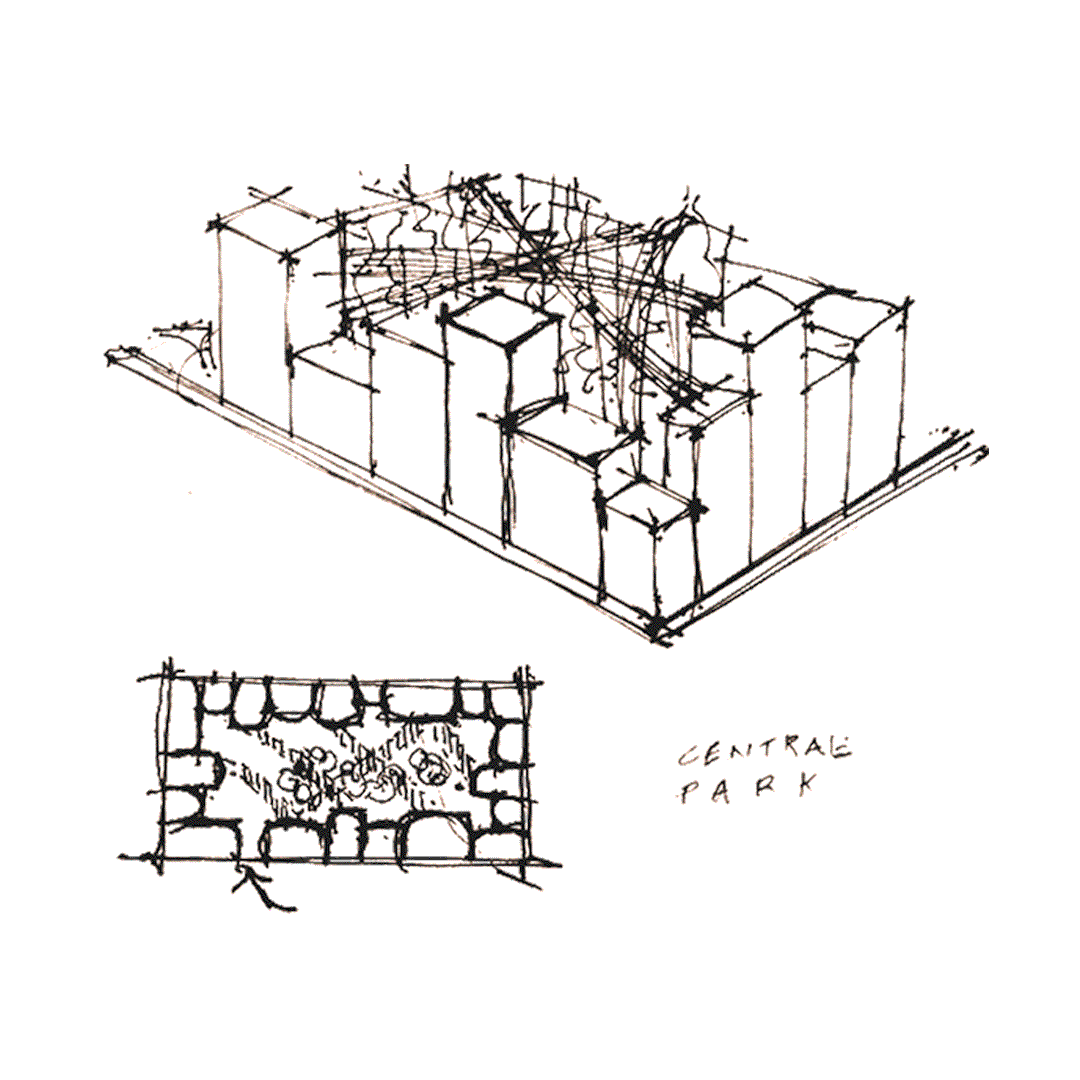 CENTRAL
PARK